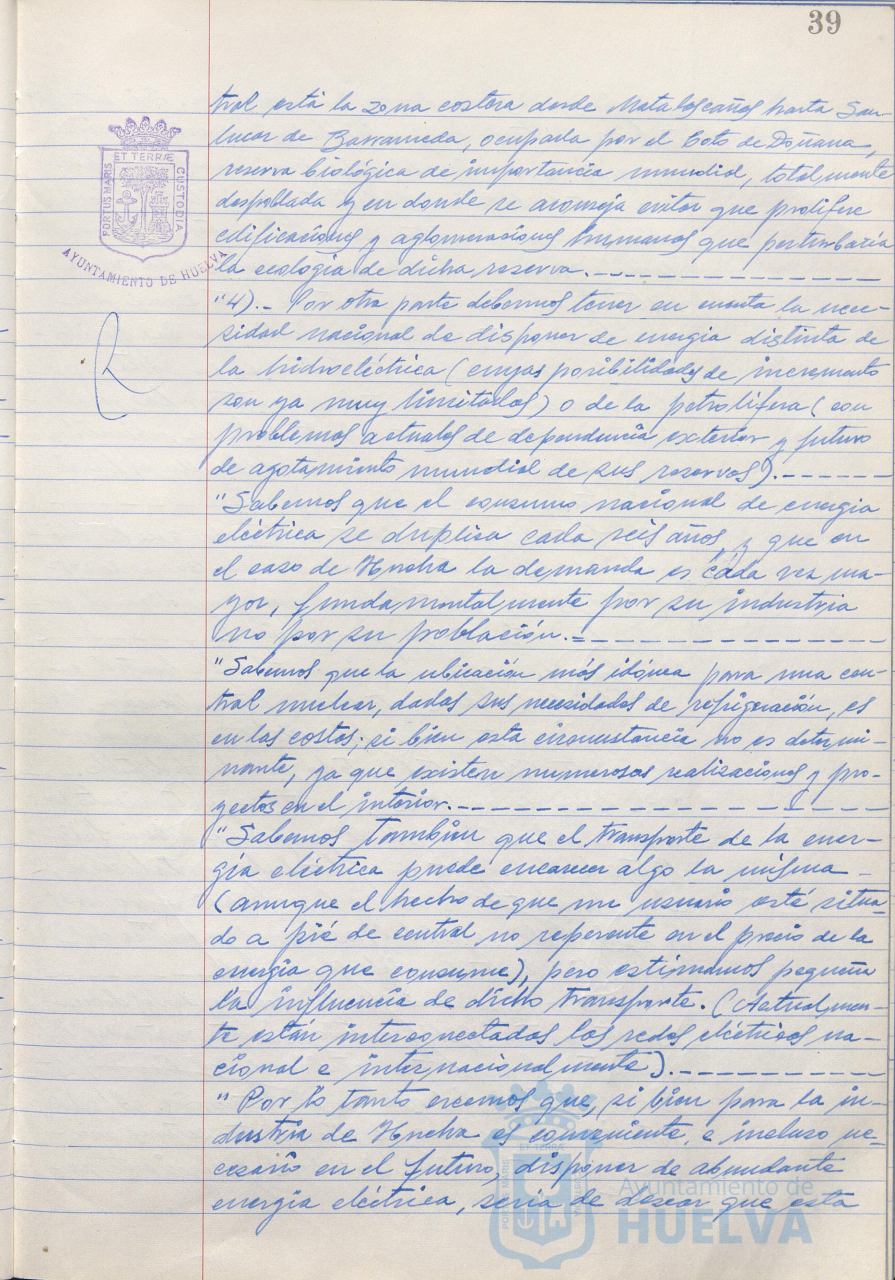 39
tral está la zona costera desde Matalascañas hasta San-
lucar de Barrameda, ocupada por el Coto de Doñana,
reserva biológica de importancia mundial, totalmente
despoblada y en donde se aconseja evitar que prolifere
edificaciones y aglomeraciones humanas que perturbaría
la ecología de dicha reserva.
"4).- Por otra parte debemos tener en cuenta la nece-
sidad nacional de disponer de energia distinta de
la hidroeléctrica (cuyas posibilidades de incremento
son ya muy limitadas) o de la petrolífera (con
problemas actuales de dependencia exterior y futuro
de agotamiento mundial de sus reservas).
"Sabemos que el consumo nacional de energia
eléctrica se duplica cada seis años y que en
el caso de Huelva la demanda es cada vez ma-
yor, fundamentalmente por su industria
no por su población.
"Sabemos que la ubicación más idónea para una cen-
tral nuclear, dadas sus necesidades de refrigeración, es
en las costas; si bien esta circunstancia no es determi-
nante, ya que existen numerosas realizaciones y pro-
yectos en el interior.
"Sabemos también que el transporte de la ener-
gía eléctrica puede encarecer algo la misma
(aunque el hecho de que un usuario esté situa-
do a pié de central no repercute en el precio de la
energía que consume), pero estimamos pequeña
la influencia de dicho transporte. (Actualmen-
te están interconectadas las redes eléctricas na-
cional e internacionalmente).
"Por lo tanto creemos que, si bien para la in-
dustria de Huelva es conveniente, e incluso ne-
cesario en el futuro, disponer de abundante
energia eléctrica, sería de desear que esta
PORTUS MARIS ET TERRÆ CUSTODIA
AYUNTAMIENTO DE HUELVA
Ayuntamiento de
HUELVA